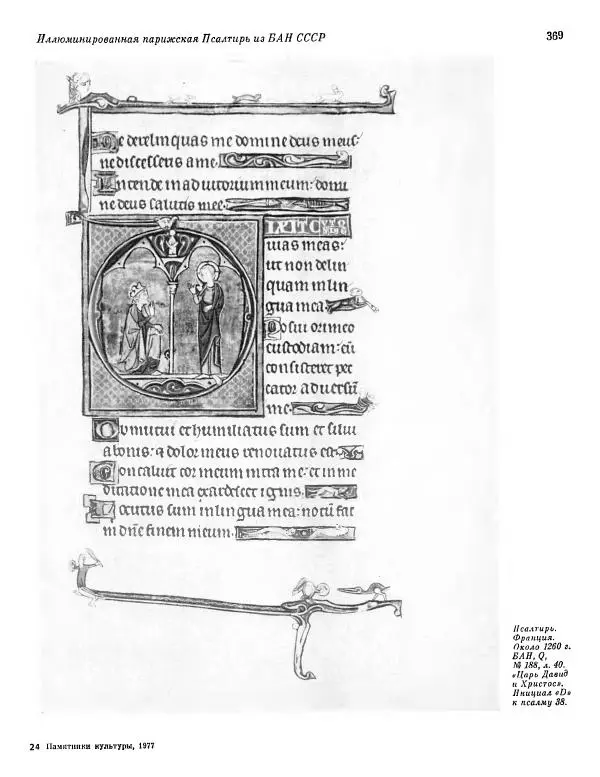 Иллюминированная парижская Псалтирь из БАН СССР
369
Ne derelinquas me domine deus meus:
ne discesseris a me.
Intende in adiutorium meum: domi
ne deus salutis mee.
DIXIT CUTO
DIAS
uias meas:
ut non delin
quam in lin
gua mea.
Posui ori meo
custodiam: cū
consisteret pec
cator aduersū
me.
Obmutui et humiliatus sum et silui
a bonis: et dolor meus renouatus est.
Concaluit cor meum intra me: et in me
ditatione mea exardescet ignis.
Locutus sum in lingua mea: notū fac
m dn̄e finem meum.
Псалтирь.
Франция.
Около 1260 г.
БАН, Q,
№ 188, л. 40.
«Царь Давид
и Христос».
Инициал «D»
к псалму 38.
24 Памятники культуры, 1977